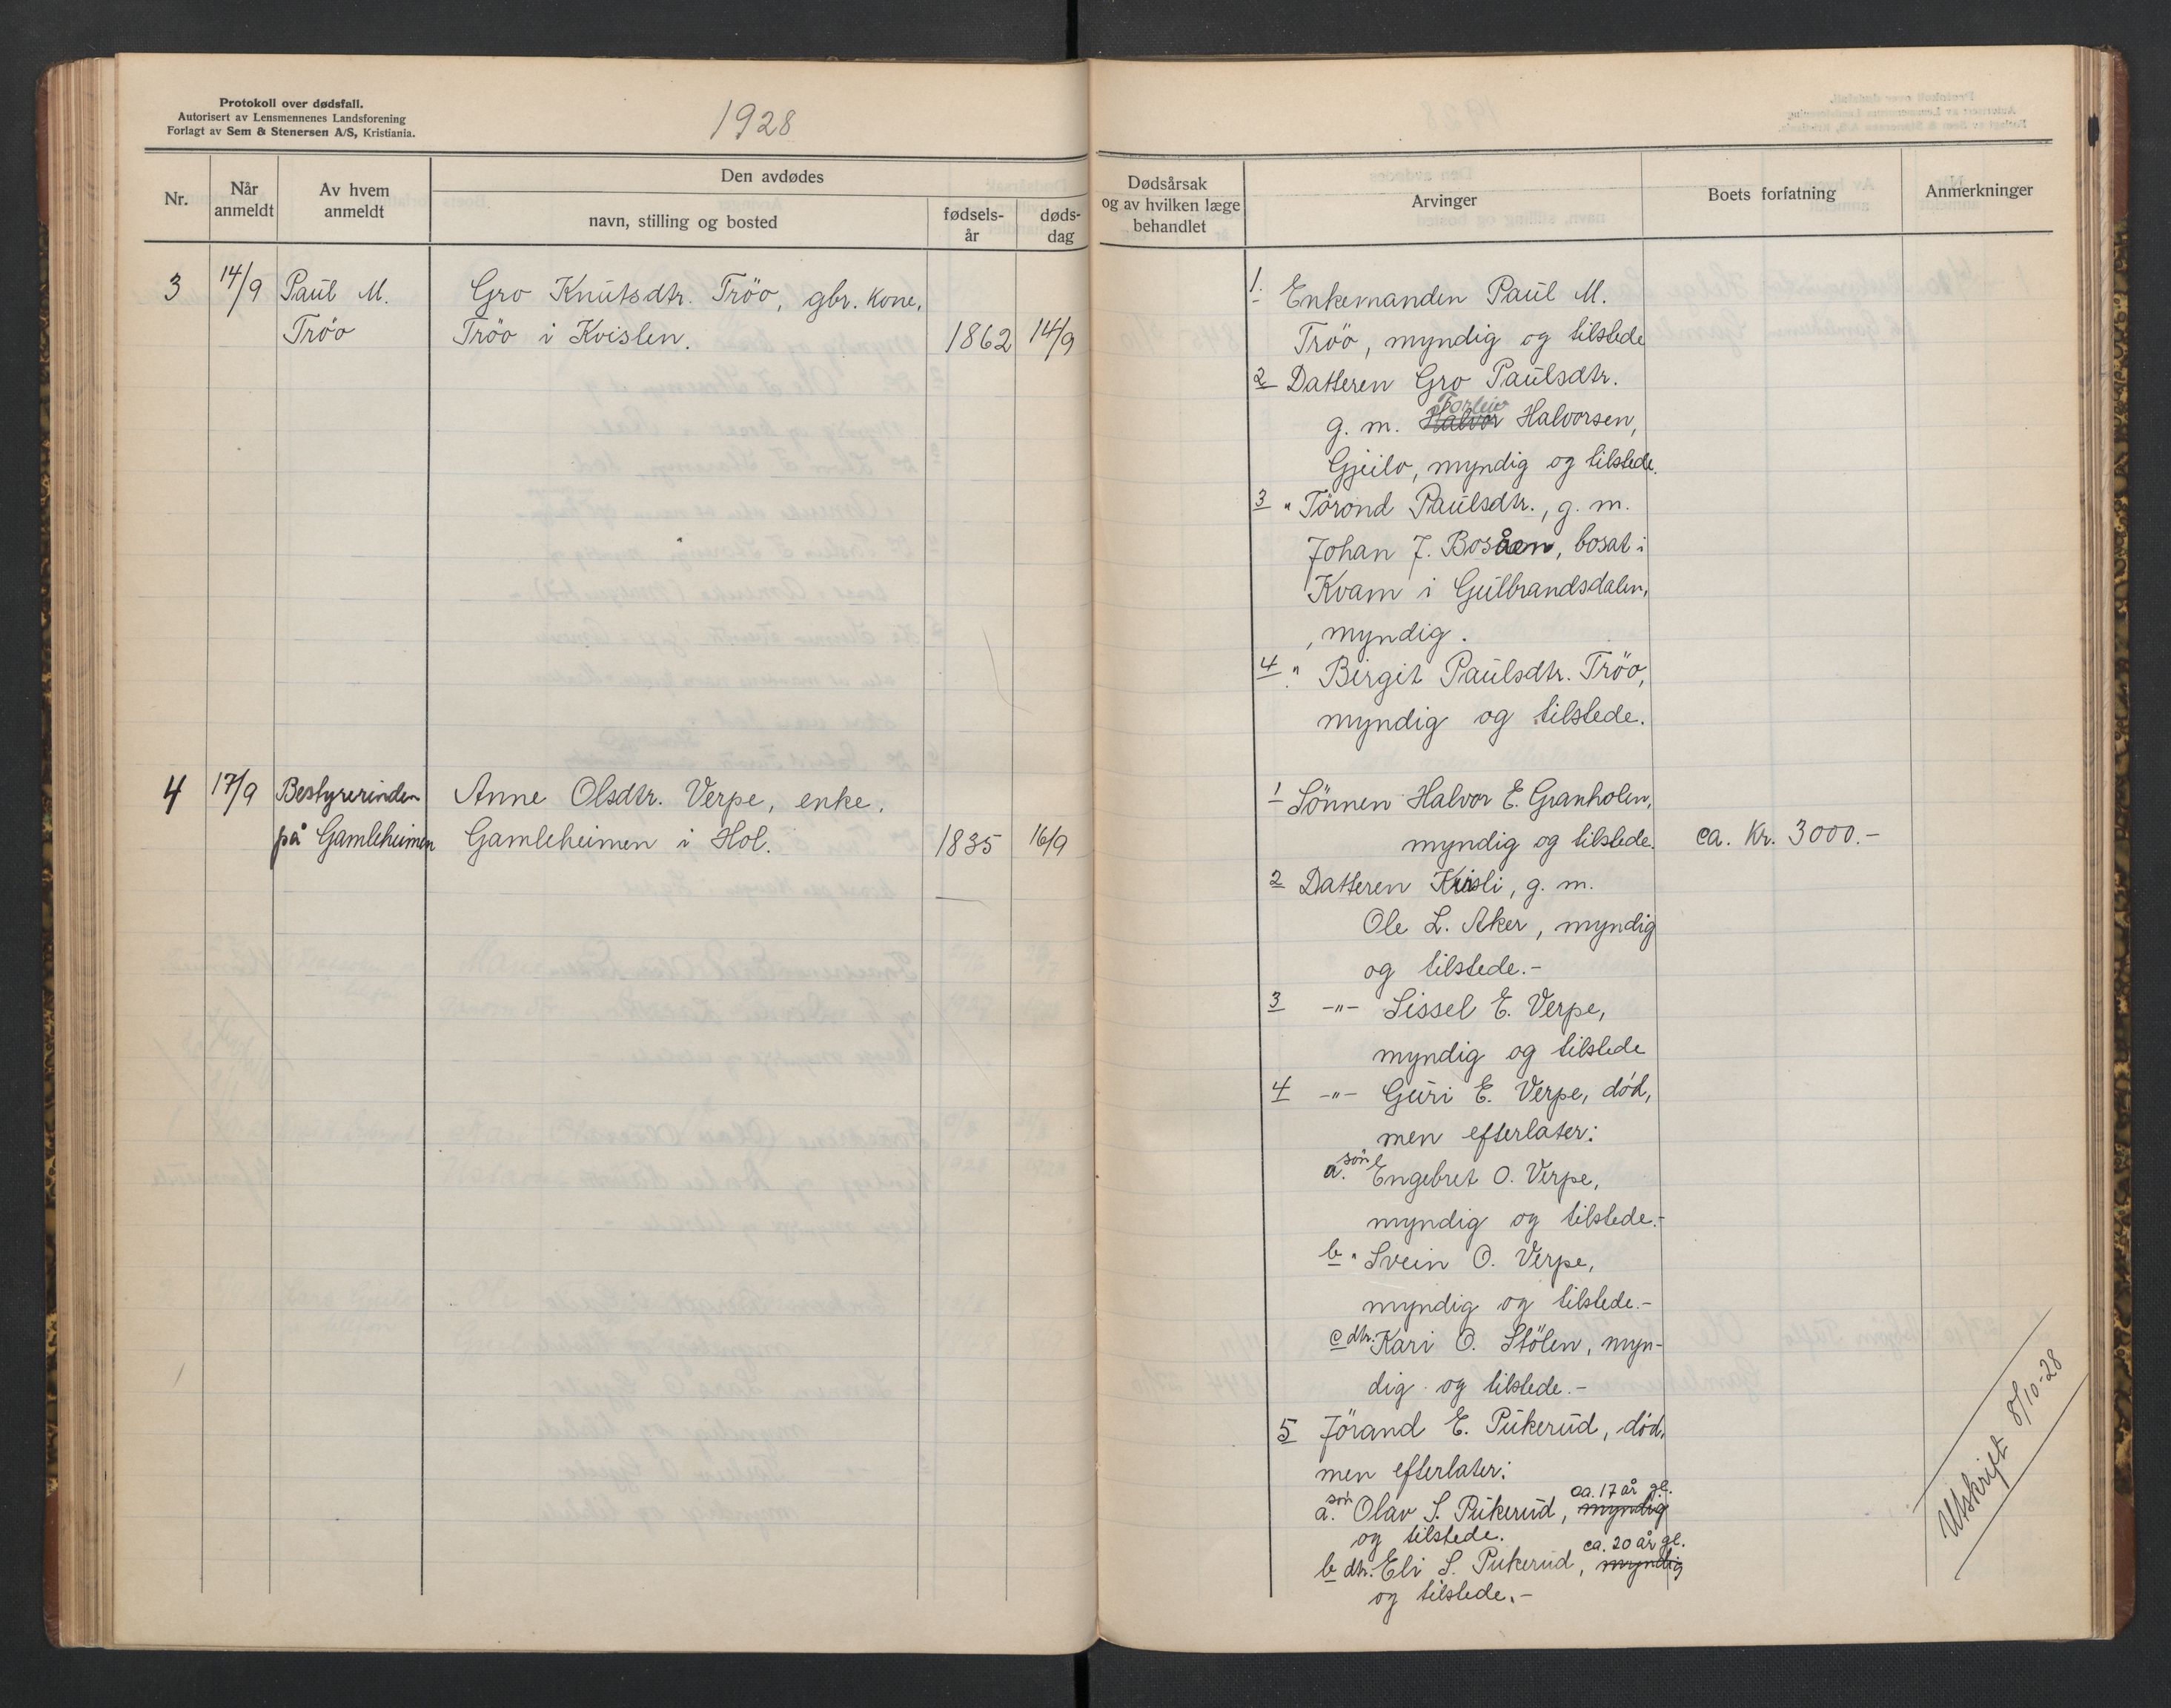 Protokoll over dødsfall.
Autorisert av Lensmennenes Landsforening
Forlagt av Sem & Stenersen A/S, Kristiania.
1928
Nr.
Når anmeldt
Av hvem anmeldt
Den avdødes
navn, stilling og bosted
fødsels-år
døds-dag
Dødsårsak
og av hvilken læge
behandlet
Arvinger
Boets forfatning
Anmerkninger
3 14/9 Paul M. Gro Knutsdtr. Tröo, gbr. kone,
Tröo Tröo i Kvislen. 1862 14/9
1. Enkemanden Paul M.
Tröo, myndig og tilstede
2 Datteren Gro Paulsdtr.
Torleiv
g. m. Halvor Halvorsen,
Gjeilo, myndig og tilstede.
3 " Törond Paulsdtr., g. m.
Johan J. Bosåen, bosat i
Kvam i Gulbrandsdalen,
, myndig.
4 " Birgit Paulsdtr. Tröo,
myndig og tilstede.
4 17/9 Bestyrerinden Anne Olsdtr. Verpe, enke.
på Gamleheimen Gamleheimen i Hol. 1835 16/9
1 Sönnen Halvor E. Granholen,
myndig og tilstede. ca. Kr. 3000.-
2 Datteren Kristi, g. m.
Ole L. Aker, myndig
og tilstede.-
3 -"- Sissel E. Verpe,
myndig og tilstede
4 -"- Guri E. Verpe, död,
men efterlater:
a. sön Engebret O. Verpe,
myndig og tilstede.-
b " Svein O. Verpe,
myndig og tilstede.-
c dtr. Kari O. Stölen, myn-
dig og tilstede.-
5 Jörand E. Pukerud, död,
men efterlater:
ca. 17 år gl.
a. sön Olav S. Pukerud, myndig
og tilstede.
ca. 20 år gl.
b dtr. Eli S. Pukerud, myndig
og tilstede.-
Utskrift 8/10-28